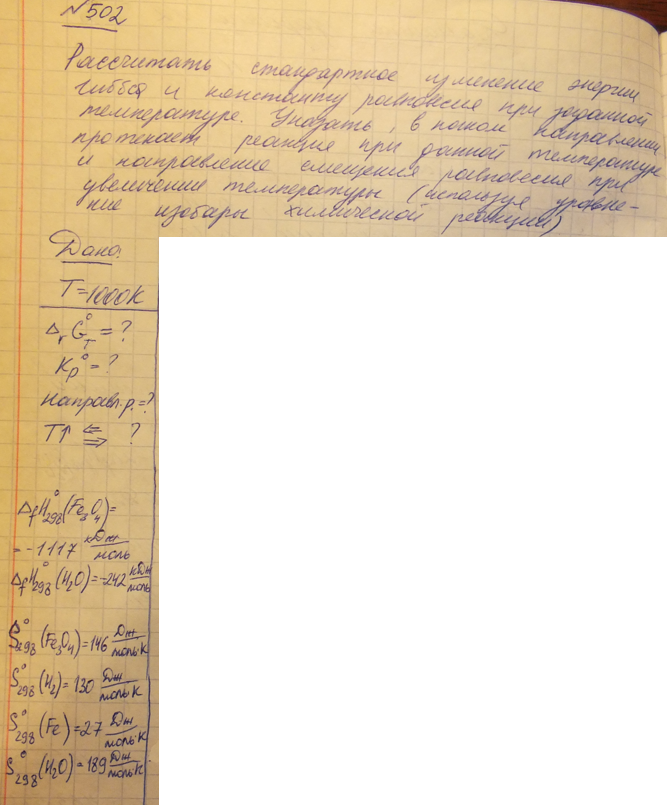 №502
Рассчитать стандартное изменение энергии
Гиббса и константу равновесия при заданной
температуре. Указать, в каком направлении
протекает реакция при данной температуре
и направление смещения равновесия при
увеличении температуры (используя уравне-
ние изобары химической реакции)
Дано:
T=1000K
ΔrG°T = ?
Kp° = ?
Направл. р. = ?
T↑ ⇐ ⇒ ?
ΔfH°298(Fe3O4)=
= -1117 кДж/моль
ΔfH°298(H2O)=-242 кДж/моль
S°298(Fe3O4)=146 Дж/моль·К
S°298(H2)=130 Дж/моль·К
S°298(Fe)=27 Дж/моль·К
S°298(H2O)=189 Дж/моль·К